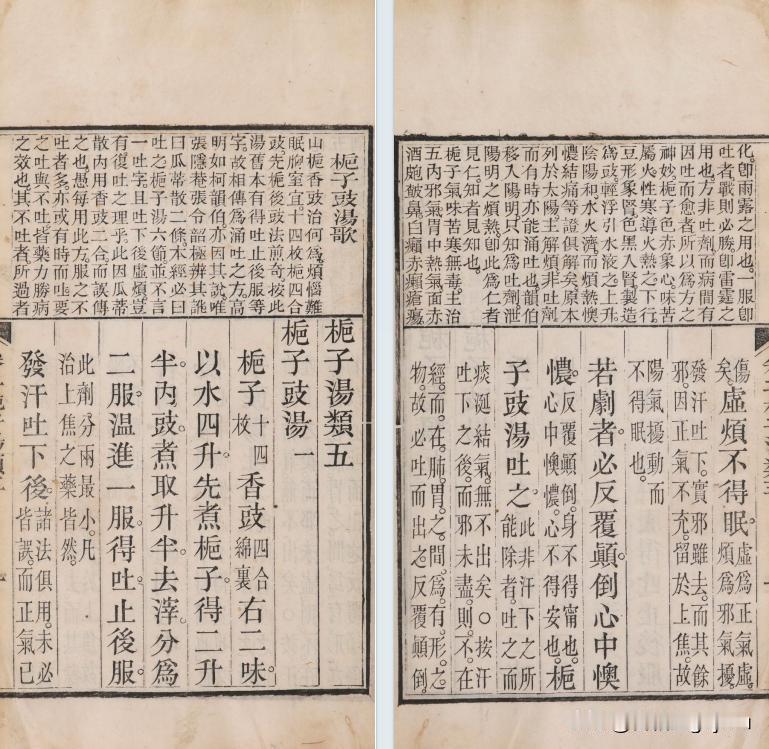 梔子豉湯歌
山梔香豉治何為。煩惱難
眠胸窒宜。十四枚梔四合
豉。先梔後豉法煎奇。按此
湯舊本有得吐止後服等
字。故相傳為涌吐之方。高
明如柯韻伯。亦因其說。唯
張隱菴張令韶極辨其訛
曰瓜蒂散二條。本經必曰
吐之。梔子湯六節。並不言
一吐字。且吐下後虛煩。豈
有復吐之理乎。此因瓜蒂
散內用香豉二合而誤傳
之也。愚每用此方。服之不
吐者多。亦或有時而吐。要
之吐與不吐。皆藥力勝病
之效也。其不吐者所過者
梔子湯類五
梔子豉湯 一
梔子十四枚 香豉四合綿裹 右二味
以水四升先煮梔子得二升
半內豉煮取升半去滓分為
二服溫進一服得吐止後服
此劑分兩最小。凡
治上焦之藥皆然。
發汗吐下後。諸法俱用。未必皆誤。而正氣已
化。即雨露之用也。一服即
吐者。戰則必勝。即雷霆之
用也。方非吐劑而病間有
因吐而愈者。所以為方之
神妙。梔子色赤象心。味苦
屬火。性寒導火熱之下行。
豆形象腎。色黑入腎。製造
為豉輕浮。引水液之上升。
陰陽和。水火濟。而煩熱懊
憹結痛等證俱解矣。原本
列於太陽。主解煩。非吐劑
而有時亦能涌吐也。韻伯
移入陽明。只知為吐劑。泄
陽明之煩熱。即此為仁者
見仁。知者見知也。
梔子氣味苦寒無毒。主治
五內邪氣。胃中熱氣。面赤
酒皰皶鼻。白癩赤癩瘡瘍。
傷矣。虛煩不得眠。虛為正氣虛。煩為邪氣擾。
發汗吐下。實邪雖去。而其餘
邪。因正氣不充。留於上焦。故
陽氣擾動而
不得眠也。
若劇者必反覆顛倒心中懊
憹。反覆顛倒。身不得甯也。心中懊憹。心不得安也。梔
子豉湯吐之。此非汗下之所能除者。吐之而
痰涎結氣。無不出矣。○按汗
吐下之後。而邪未盡。則不在
經。而在肺胃之間。為有形之
物。故必吐而出之。反覆顛倒。